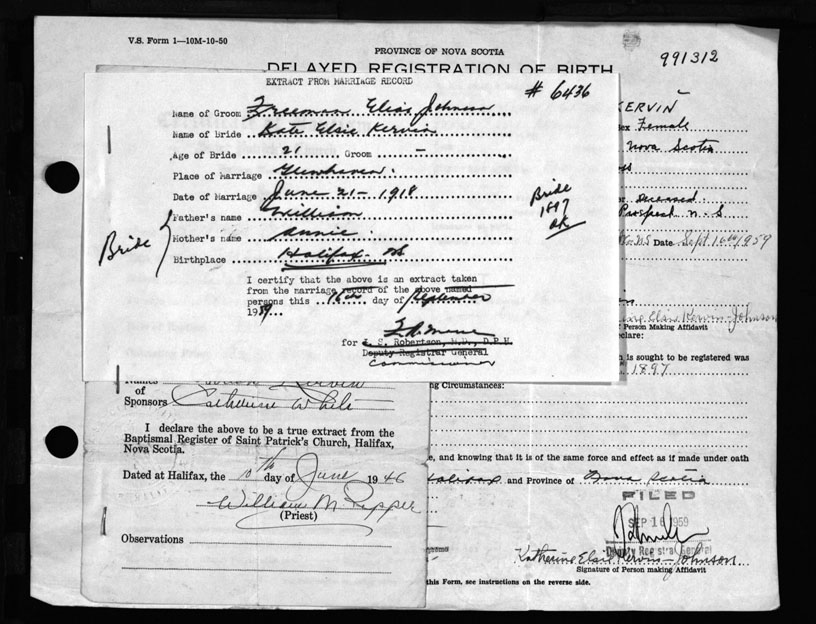 V.S. Form 1—10M-10-50
PROVINCE OF NOVA SCOTIA
991312
DELAYED REGISTRATION OF BIRTH
EXTRACT FROM MARRIAGE RECORD
# 6436
Name of Groom Freeman Elias Johnson
Name of Bride Kate Elsie Kervin
Age of Bride 21 Groom —
Place of Marriage Glenhaven.
Date of Marriage June 21 - 1918
Father's name William
Mother's name Annie.
Birthplace Halifax NS
Bride
Bride
1897
OK
I certify that the above is an extract taken
from the marriage record of the above named
persons this 16th day of September
1959
for J. S. Robertson, M.D., D.P.H.
Deputy Registrar General
Commissioner
KERVIN
Sex Female
Nova Scotia
Deceased.
Prospect N.S
Date Sept. 16th 1959
Kervin-Johnson
of Person Making Affidavit
declare:
is sought to be registered was
1897
Circumstances:
, and knowing that it is of the same force and effect as if made under oath
Halifax and Province of Nova Scotia
FILED
SEP 16 1959
Deputy Registrar General
Katherine Elsie Kervin-Johnson
Signature of Person making Affidavit
this Form, see instructions on the reverse side.
Names
of
Sponsors
Kervin
Catherine White
I declare the above to be a true extract from the
Baptismal Register of Saint Patrick's Church, Halifax,
Nova Scotia.
Dated at Halifax, the 10th day of June 1946
William M Pepper
(Priest)
Observations